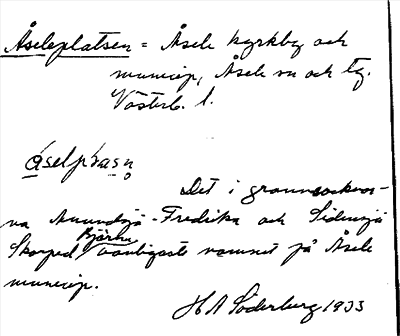 Åseleplatsen = Åsele kyrkby och
municip, Åsele sn och tg.
Västerb. l.
åselplasn
Det i grannsocknar-
na Anundsjö - Fredrika och Sidensjö
Skorped Björna vanligaste namnet på Åsele
municip.
H A Söderberg 1933